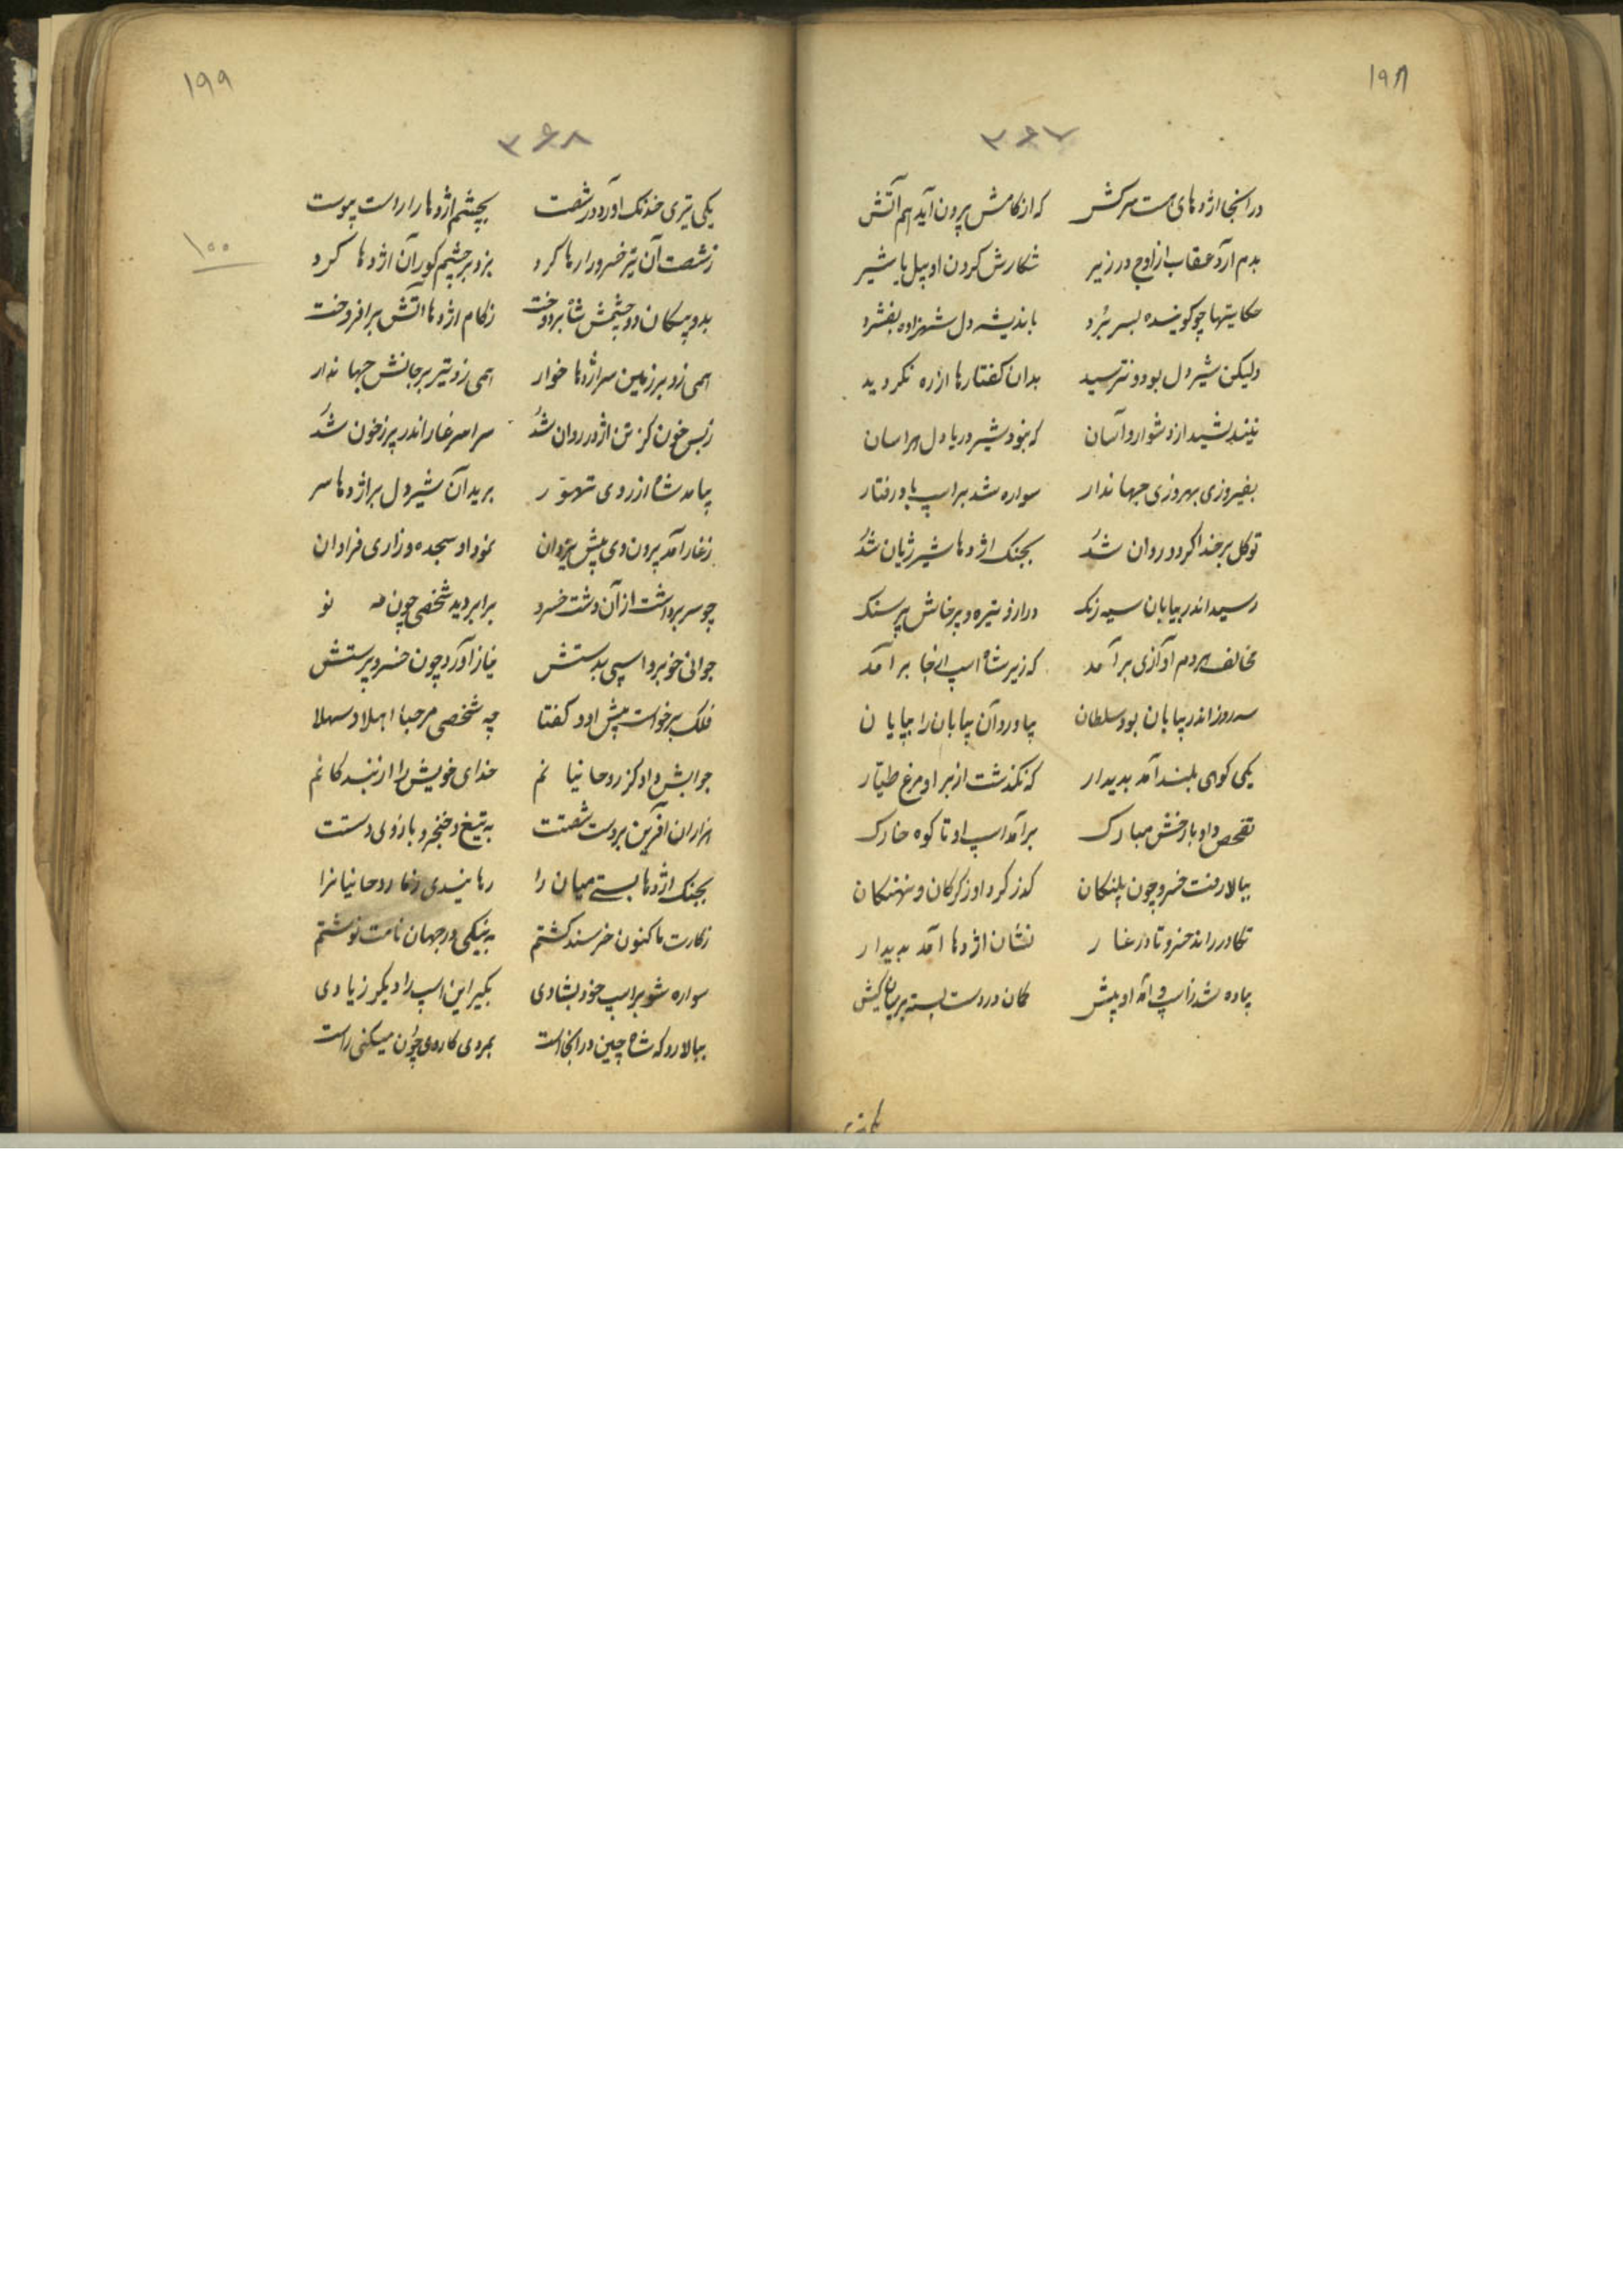 ۱۹۸
۳۶۷
در آنجا اژدهای هست سرکش که از کامش برون آید هم آتش
بدم آرد عقاب از اوج در زیر شکارش کردن او پیل یا شیر
حکایتها چو کوینده بسر برد باندیشه دل شهزاده بفشرد
ولیکن شیر دل بود و نترسید بدان کفتارها از ره نکردید
نیندیشید از دشوار و آسان که نبود شیر دریا دل هراسان
بفیروزی بهروزی جهاندار سواره شد بر اسپ باد رفتار
توکل بر خدا کرد و روان شد بجنک اژدها شیر ژیان شد
رسید اندر بیابان سیه رنک دراز و تیره و پرخاش پرسنک
مخالف هر دم آوازی برآمد که زیر شاه اسپ از جا برآمد
سه روز اندر بیابان بود سلطان بیاورد آن بیابان را بپایان
یکی کوهی بلند آمد بدیدار که نکذشت از بر او مرغ طیار
تفحص داد با رخش مبارک برآمد اسپ او تا کوه خارک
ببالا رفت خسرو چون پلنکان کذر کرد او ز کرکان و نهنکان
تکاور راند خسرو تا در غار نشان اژدها آمد بدیدار
پیاده شد ز اسپ و او پیش کمان در دست بسته بر میان کیش
۱۹۹
۳۶۸
یکی تیری خدنک آورد در شصت بچشم اژدها را راست پیوست
ز شصت آن تیر خسرو را رها کرد بزد بر چشم کور آن اژدها کرد
بدو پیکان دو چشمش شاه بردوخت ز کام اژدها آتش برافروخت
همی زد بر زمین سر اژدها خوار همی زد تیر بر جانش جهاندار
ز بس خون کز تن اژدر روان شد سراسر غار اندر پر ز خون شد
بیامد شاه از روی تهور برید آن شیر دل بر اژدها سر
ز غار آمد برون وی پیش یزدان نمود او سجده و زاری فراوان
چو سر برداشت از آن دشت خسرو برابر دید شخصی چون مه نو
۱۰۰
جوانی خوبرو اسپی بدستش نیاز آورد چون خسرو پرستش
فلک برخواست پیش او و کفتا چه شخصی مرحبا اهلا و سهلا
جوابش داد کز روحانیانم خدای خویش را از بندکانم
هزاران آفرین بر دست شصتت به تیغ و خنجر و بازوی دستت
بجنک اژدها بستی میان را رهانیدی ز غار روحانیانرا
ز کارت ما کنون خرسند کشتم به نیکی در جهان نامت نوشتم
سواره شو بر اسپ خود بشادی بکیر این اسپ را دیکر زیادی
ببالا رو که شاه چین در آنجاست بمردی کار وی چون میکنی راست